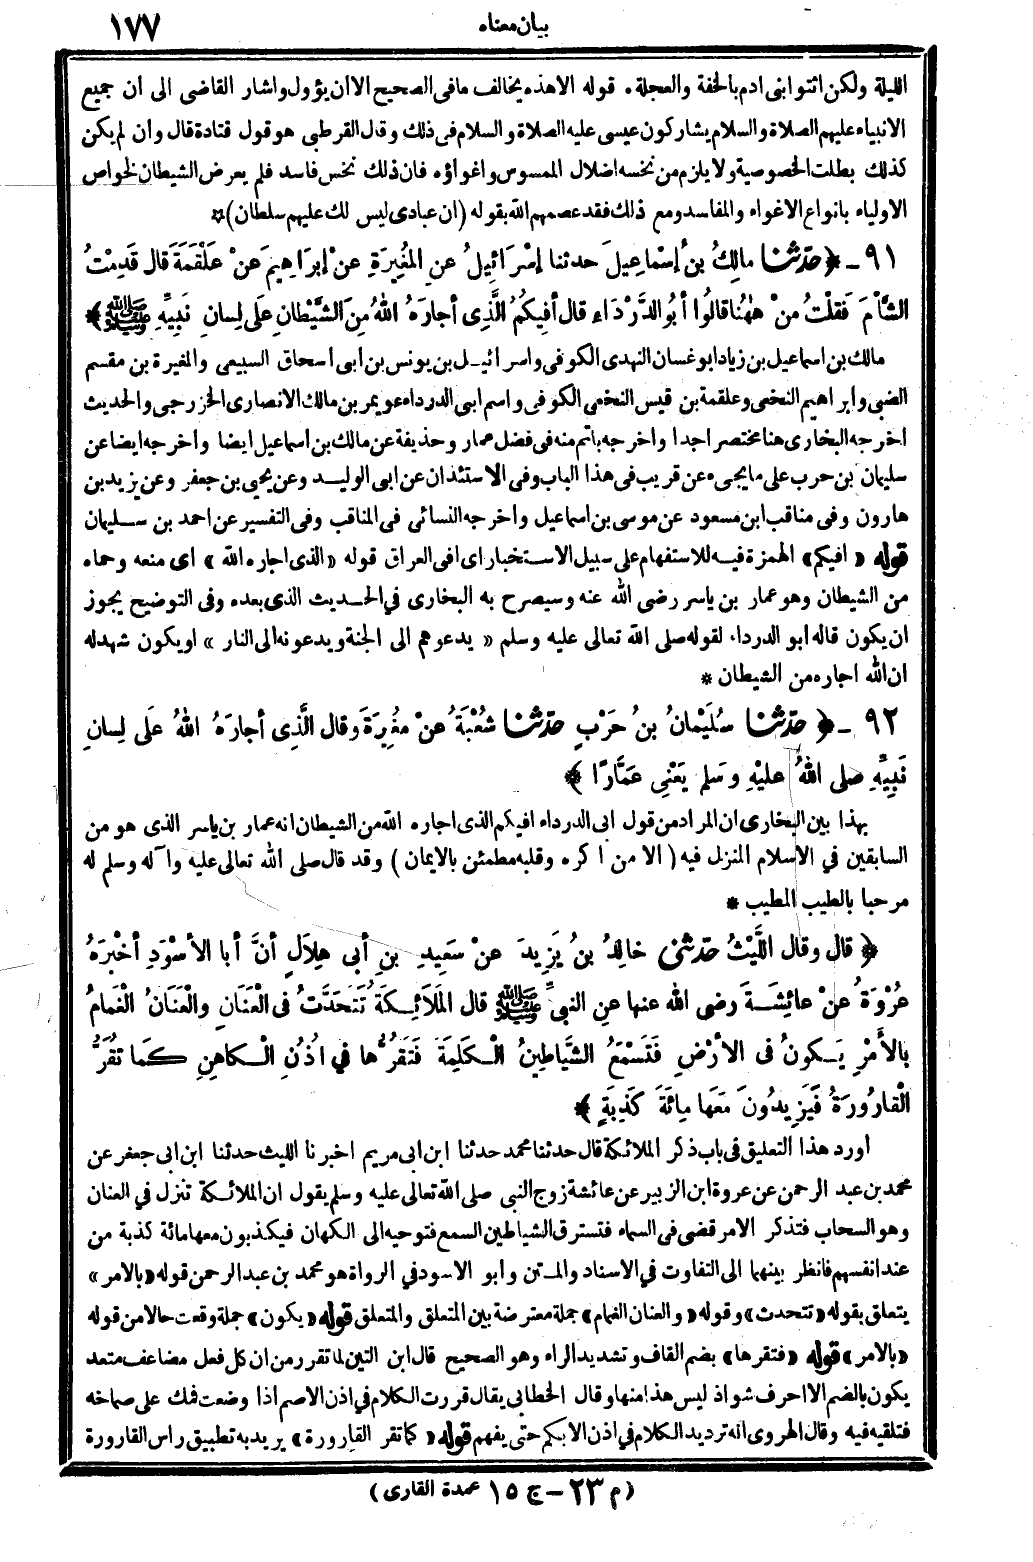 بيان معناه
١٧٧
الليلة ولكن ائتوا بنى ادم بالخفة والعجلة . قوله الا هذه يخالف ما فى الصحيح الا ان يؤول واشار القاضى الى ان جميع
الانبياء عليهم الصلاة والسلام يشاركون عيسى عليه الصلاة والسلام فى ذلك وقال القرطبى هو قول قتادة قال وان لم يكن
كذلك بطلت الخصوصية ولا يلزم من نخسه اضلال الممسوس واغواؤه فان ذلك نخس فاسد فلم يعرض الشيطان لخواص
الاولياء بانواع الاغواء والمفاسد ومع ذلك فقد عصمهم الله بقوله (ان عبادى ليس لك عليهم سلطان) *
٩١ - ﴿ حدّثنا مالِكُ بن أِسْماعِيلَ حدثنا إسْرَائِيلُ عنِ المُغِيرَةِ عنْ إبْرَاهِيمَ عنْ عَلْقَمَةَ قال قَدِمْتُ
الشَّأْمَ فَقلْتُ مَنْ هٰهُنا قالُوا أبُو الدَّرْدَاءِ قال أفِيكُمُ الَّذِى أجارَهُ اللهُ مِنَ الشَّيْطانِ علَى لِسانِ نَبِيِّهِ ﷺ ﴾
مالك بن اسماعيل بن زياد ابو غسان النهدى الكوفى واسرائيل بن يونس بن ابى اسحاق السبيعى والمغيرة بن مقسم
الضبى وابراهيم النخعى وعلقمة بن قيس النخعى الكوفى واسم ابى الدرداء عويمر بن مالك الانصارى الخزرجى والحديث
اخرجه البخارى هنا مختصرا جدا واخرجه باتم منه فى فضل عمار وحذيفة عن مالك بن اسماعيل ايضا واخرجه ايضا عن
سليمان بن حرب على ما يجىء عن قريب فى هذا الباب وفى الاستئذان عن ابى الوليد وعن يحيى بن جعفر وعن يزيد بن
هارون وفى مناقب ابن مسعود عن موسى بن اسماعيل واخرجه النسائى فى المناقب وفى التفسير عن احمد بن سليمان
قوله « افيكم» الهمزة فيه للاستفهام على سبيل الاستخبار اى افى العراق قوله «الذى اجاره الله » اى منعه وحماه
من الشيطان وهو عمار بن ياسر رضى الله عنه وسيصرح به البخارى فى الحديث الذى بعده وفى التوضيح يجوز
ان يكون قاله ابو الدرداء لقوله صلى الله تعالى عليه وسلم « يدعوهم الى الجنة ويدعونه الى النار » او يكون شهد له
ان الله اجاره من الشيطان *
٩٢ - ﴿ حدّثنا سُلَيْمانُ بنُ حَرْبٍ حدّثنا شُعْبَةُ عنْ مُغِيرَةَ وقال الَّذِى أجارَهُ اللهُ علَى لِسانِ
نَبِيِّهِ صلى اللهُ عليْهِ وسَلم يَعْنِى عَمَّارًا ﴾
بهذا بين البخارى ان المراد من قول ابى الدرداء افيكم الذى اجاره الله من الشيطان انه عمار بن ياسر الذى هو من
السابقين فى الاسلام المنزل فيه ( الا من اكره وقلبه مطمئن بالايمان ) وقد قال صلى الله تعالى عليه وآله وسلم له
مرحبا بالطيب المطيب *
﴿ قال وقال اللَّيْثُ حدّثنى خالِدُ بنُ يَزِيدَ عنْ سَعِيدِ بنِ أبى هِلاَلٍ أنَّ أبا الأسْوَدِ أخْبَرَهُ
عُرْوَةُ عنْ عائِشَةَ رضى الله عنها عنِ النبىِّ ﷺ قال المَلاَئِكَةُ تَتَحَدَّثُ فِى العَنَانِ والْعَنَانُ الغَمامُ
بالأَمْرِ يَكونُ فِى الأرْضِ فَتَسْمَعُ الشَّياطِينُ الْكَلِمَةَ فَتَقُرُّها فِي اُذُنِ الْكاهِنِ كَما تُقَرُّ
الْقارُورَةُ فَيَزِيدُونَ مَعَها مِائَةَ كَذِبَةٍ ﴾
اورد هذا التعليق فى باب ذكر الملائكة قال حدثنا محمد حدثنا ابن ابى مريم اخبرنا الليث حدثنا ابن ابى جعفر عن
محمد بن عبد الرحمن عن عروة ابن الزبير عن عائشة زوج النبى صلى الله تعالى عليه وسلم يقول ان الملائكة تنزل فى العنان
وهو السحاب فتذكر الامر قضى فى السماء فتسترق الشياطين السمع فتوحيه الى الكهان فيكذبون معها مائة كذبة من
عند انفسهم فانظر بينهما الى التفاوت فى الاسناد والمتن وابو الاسود فى الرواة هو محمد بن عبد الرحمن قوله «بالامر»
يتعلق بقوله «تتحدث» وقوله « والعنان الغمام» جملة معترضة بين المتعلق والمتعلق قوله «يكون» جملة وقعت حالا من قوله
«بالامر» قوله «فتقرها» بضم القاف وتشديد الراء وهو الصحيح قال ابن التين لما تقرر من ان كل فعل مضاعف متعد
يكون بالضم الا احرف شواذ ليس هذا منها وقال الخطابى يقال قررت الكلام فى اذن الاصم اذا وضعت فمك على صماخه
فتلقيه فيه وقال الهروى انه ترديد الكلام فى اذن الابكم حتى يفهم قوله « كما تقر القارورة » يريد به تطبيق راس القارورة
(م ٢٣ - ج ١٥ عمدة القارى )